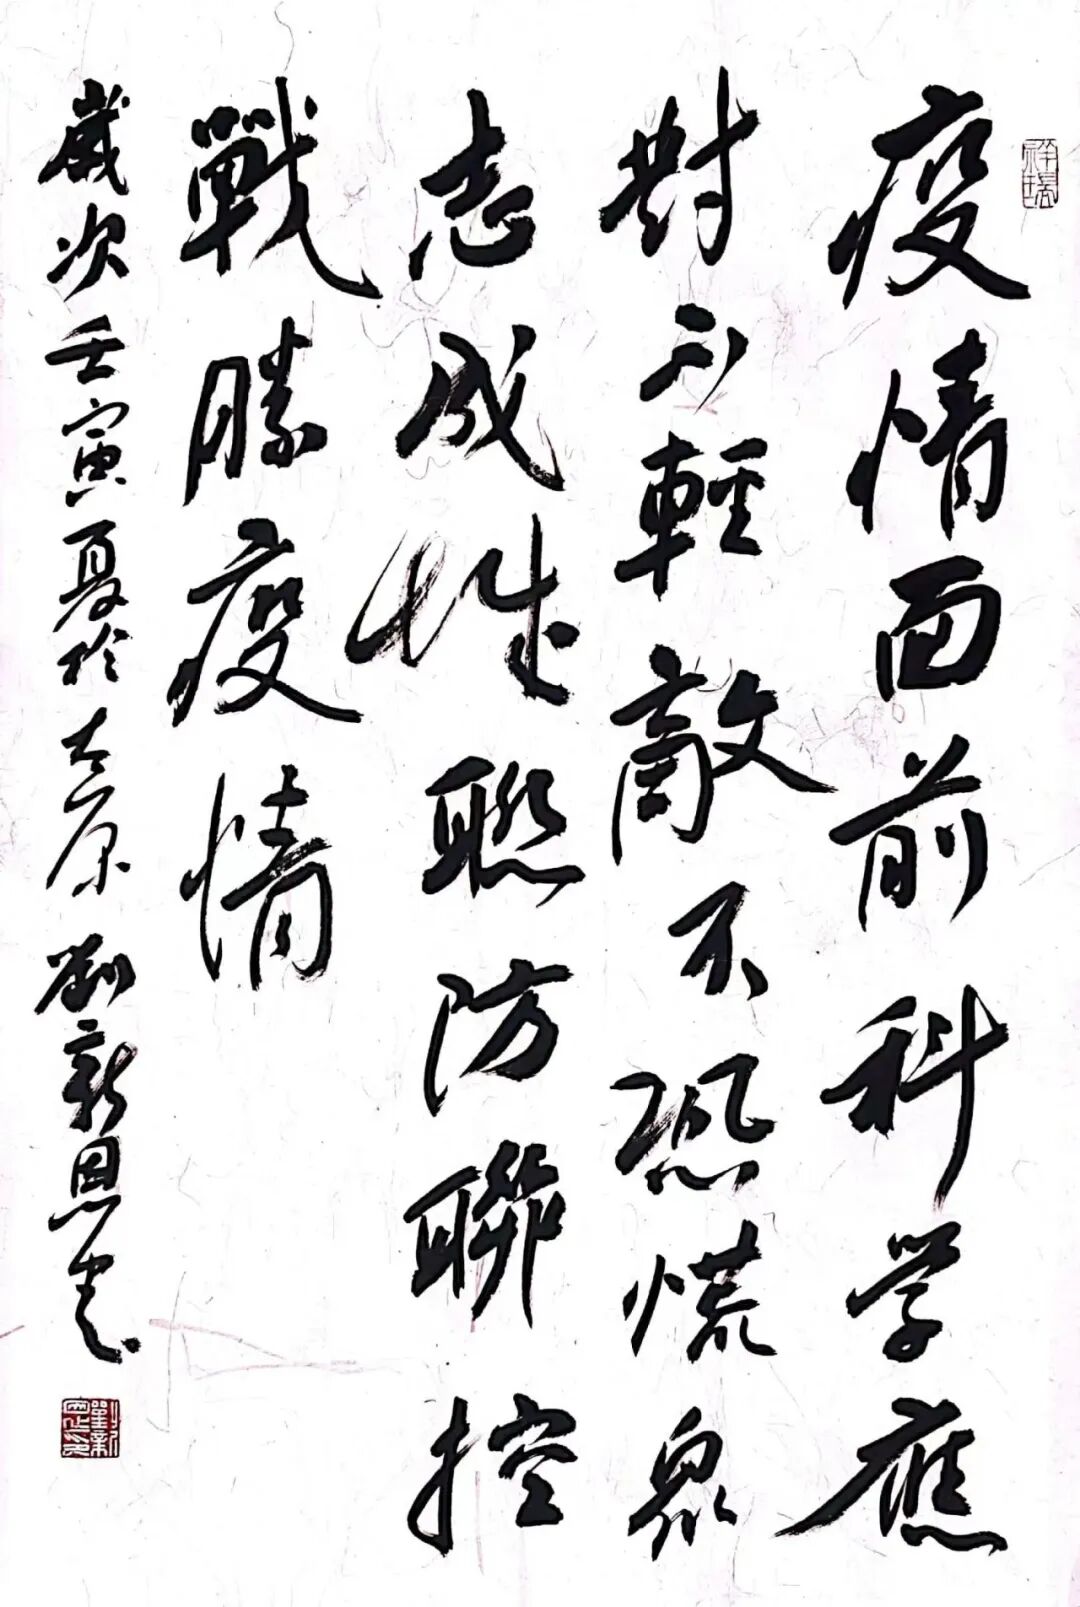 疫情面前科学應
對不輕敵不恐慌衆
志成城聯防聯控
戰勝疫情
歲次壬寅夏於太原 劉新恩书
祥瑞